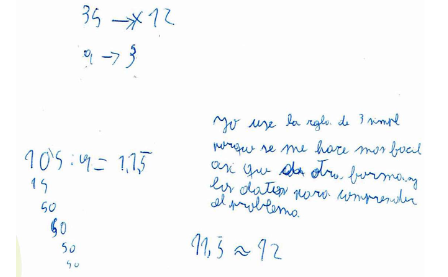 35 → x 12
9 → 3
105 : 9 = 1,1,5
15
50
60
50
50
Yo use la regla de 3 simpl
porque se me hace mas facil
asi que de otra forma y
los datos para comprender
el problema.
11,5 ≈ 12